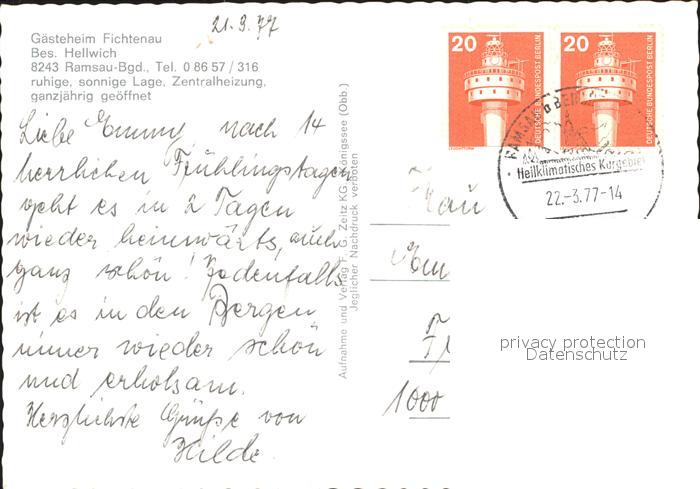 21.3.77
Gästeheim Fichtenau
Bes. Hellwich
8243 Ramsau-Bgd., Tel. 0 86 57 / 316
ruhige, sonnige Lage, Zentralheizung,
ganzjährig geöffnet
Liebe Emmy nach 14
herrlichen Frühlingstagen
geht es in 2 Tagen
wieder heimwärts, auch
ganz schön! Jedenfalls
ist es in den Bergen
immer wieder schön
und erholsam.
Herzlichste Grüße von
Hilde.
Aufnahme und Verlag F. G. Zeitz KG., Königssee (Obb.)
Jeglicher Nachdruck verboten
20
DEUTSCHE BUNDESPOST BERLIN
20
DEUTSCHE BUNDESPOST BERLIN
RAMSAU b BE
Heilklimatisches Kurgebiet
22.-3.77-14
Frau
Em
Fl
1000
privacy protection
Datenschutz